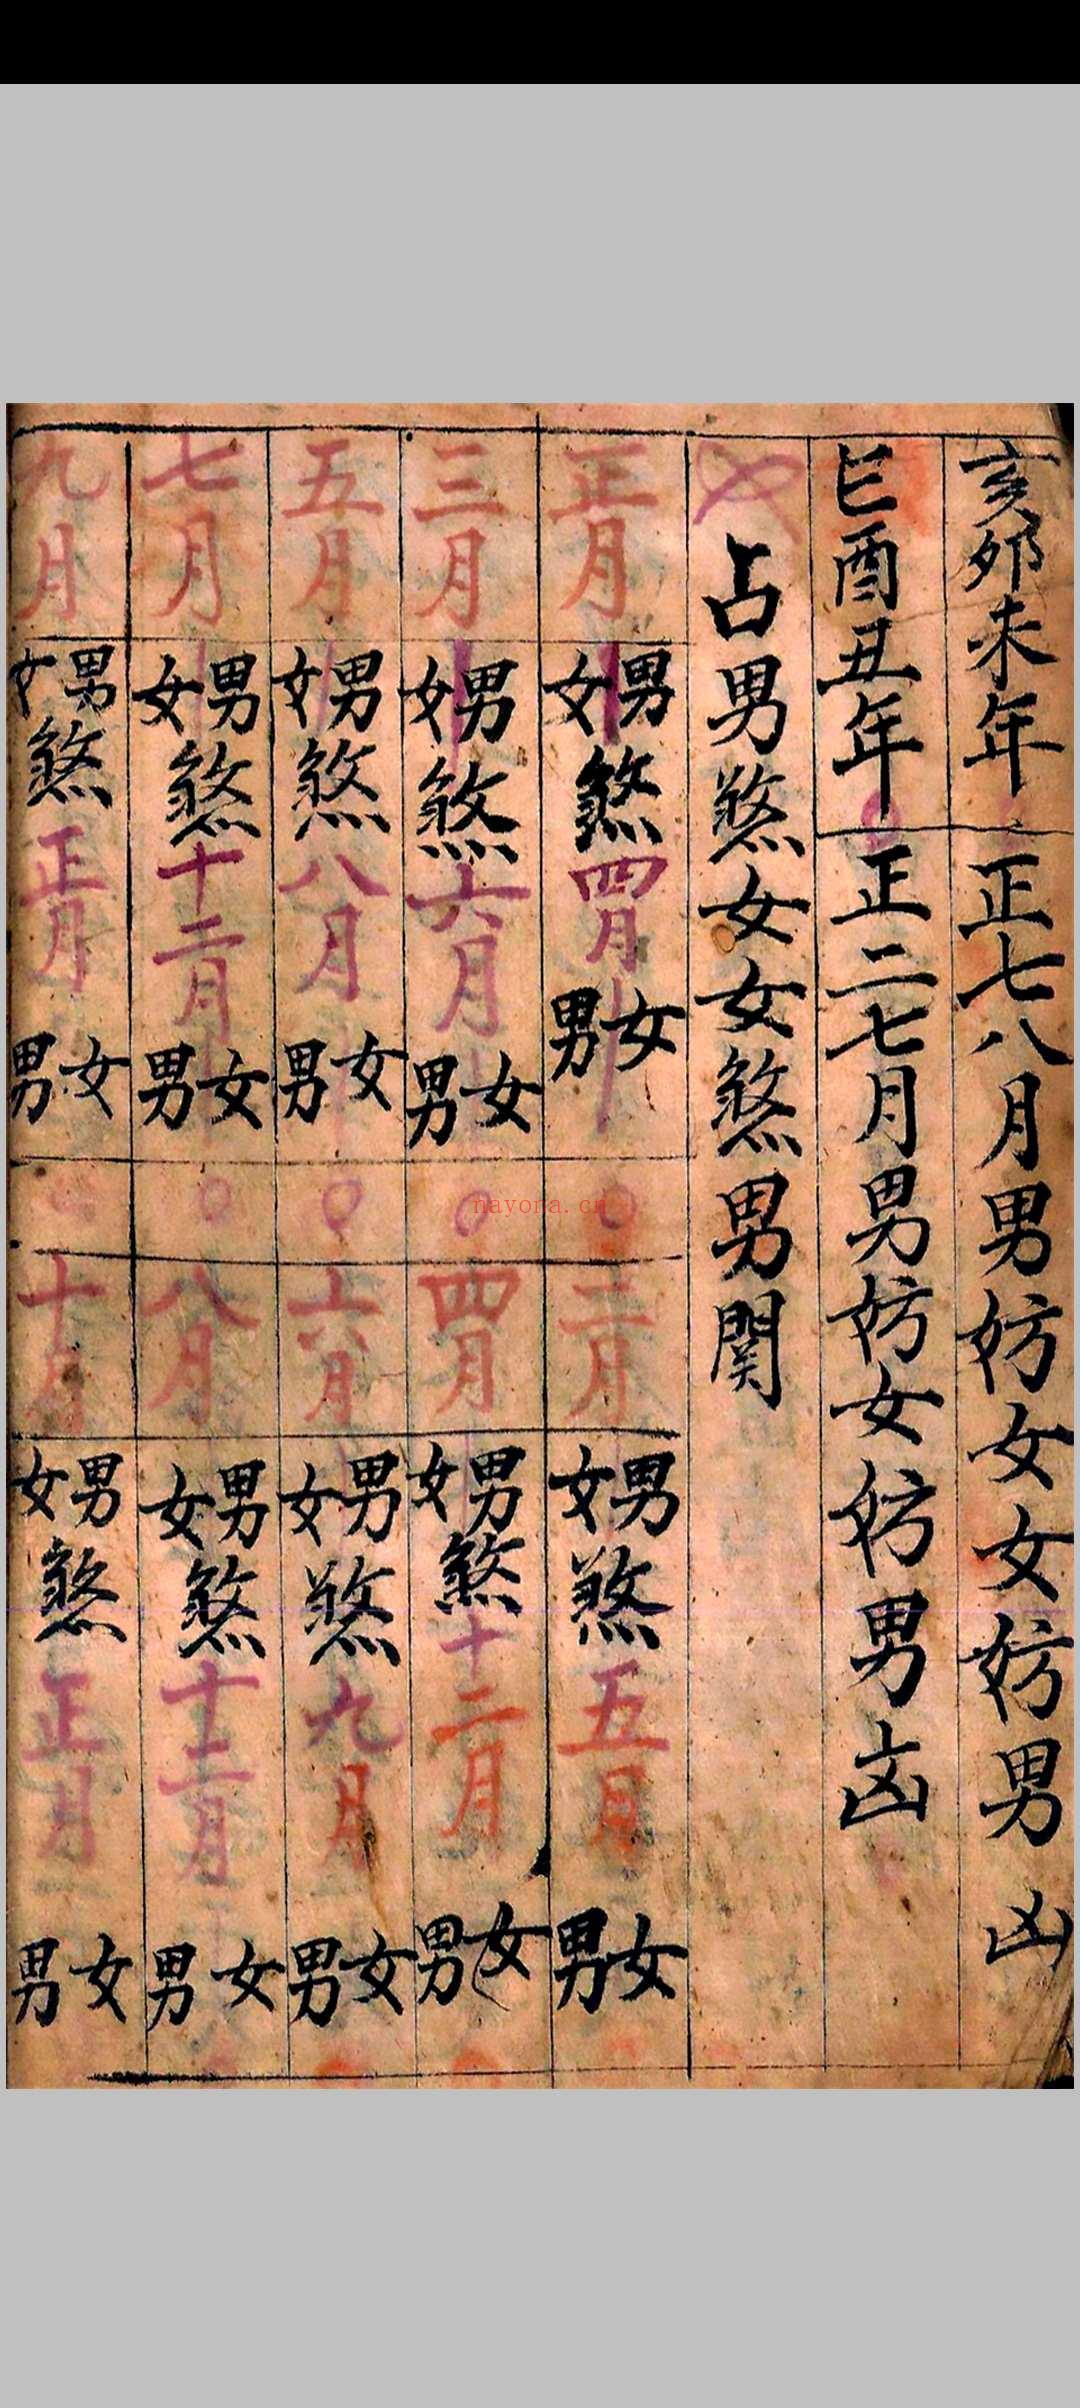 亥卯未年 正七八月男妨女女妨男 凶
巳酉丑年 正二七月男妨女妨男凶
占男煞女女煞男関
正月 男女煞四月 女男
二月 男女煞五月 女男
三月 男女煞六月 女男
四月 男女煞十二月 女男
五月 男女煞八月 女男
六月 男女煞九月 女男
七月 男女煞十二月 女男
八月 男女煞十二月 女男
九月 男女煞正月 女男
十月 男女煞正月 女男
nayona.cn